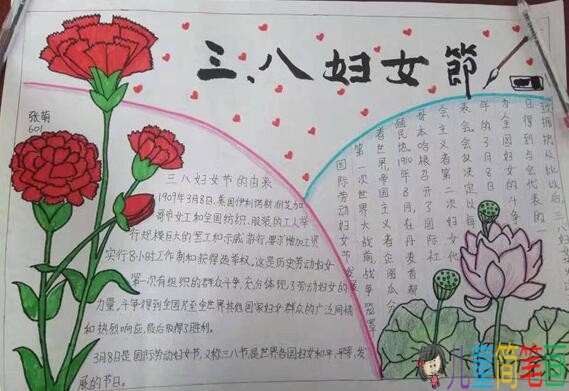 三、八妇女節
张萌
601
三八妇女节的由来
1909年3月8日,美国伊利诺斯洲芝加
哥市女工和全国纺织、服装的工人举
行规模巨大的罢工和示威游行,要求增加工资
实行8小时工作制和获得选举权。这是历史劳动妇女
第一次有组织的群众斗争,充分体现了劳动妇女的
力量,斗争得到全国乃至全世界其他国家妇女群众的广泛同情
和热烈响应,最后取得了胜利。
3月8日是国际劳动妇女节,又称三八节,是世界各国妇女和平、平等、发
展的节日。
国际劳动妇女节发
第一次世界大战前战争笼罩
着世界,帝国主义者企图瓜分
殖民地。1910年8月,在丹麦
哥本哈根召开了国际社
会主义者第二次妇女代
表会。会议决定以每
年的3月8日
为全国妇女的斗争
日得到与会代表的一
致拥护从此以后
三八妇
儿童简笔画